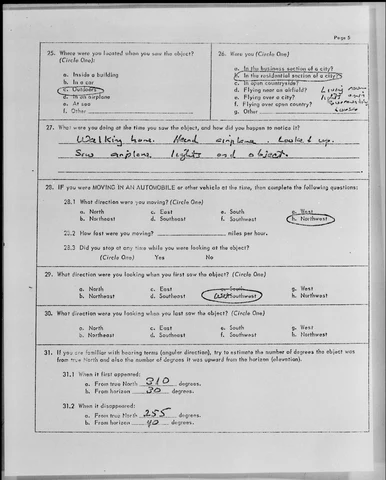 Page 5
25. Where were you located when you saw the object?
(Circle One):
a. Inside a building
b. In a car
c. Outdoors
d. In an airplane
e. At sea
f. Other
26. Were you (Circle One)
a. In the business section of a city?
b. In the residential section of a city?
c. In open countryside?
d. Flying near an airfield?
e. Flying over a city?
f. Flying over open country?
g. Other
27. What were you doing at the time you saw the object, and how did you happen to notice it?
Walking home. Heard airplane. Looked up.
Saw airplane lights and object.
28. IF you were MOVING IN AN AUTOMOBILE or other vehicle at the time, then complete the following questions:
28.1 What direction were you moving? (Circle One)
a. North c. East e. South g. West
b. Northeast d. Southeast f. Southwest h. Northwest
28.2 How fast were you moving? miles per hour.
28.3 Did you stop at any time while you were looking at the object?
(Circle One) Yes No
29. What direction were you looking when you first saw the object? (Circle One)
a. North c. East e. South g. West
b. Northeast d. Southeast Southwest h. Northwest
30. What direction were you looking when you last saw the object? (Circle One)
a. North c. East e. South g. West
b. Northeast d. Southeast f. Southwest h. Northwest
31. If you are familiar with bearing terms (angular direction), try to estimate the number of degrees the object was
from true North and also the number of degrees it was upward from the horizon (elevation).
31.1 When it first appeared:
a. From true North 310 degrees.
b. From horizon 30 degrees.
31.2 When it disappeared:
a. From true North 255 degrees.
b. From horizon 40 degrees.